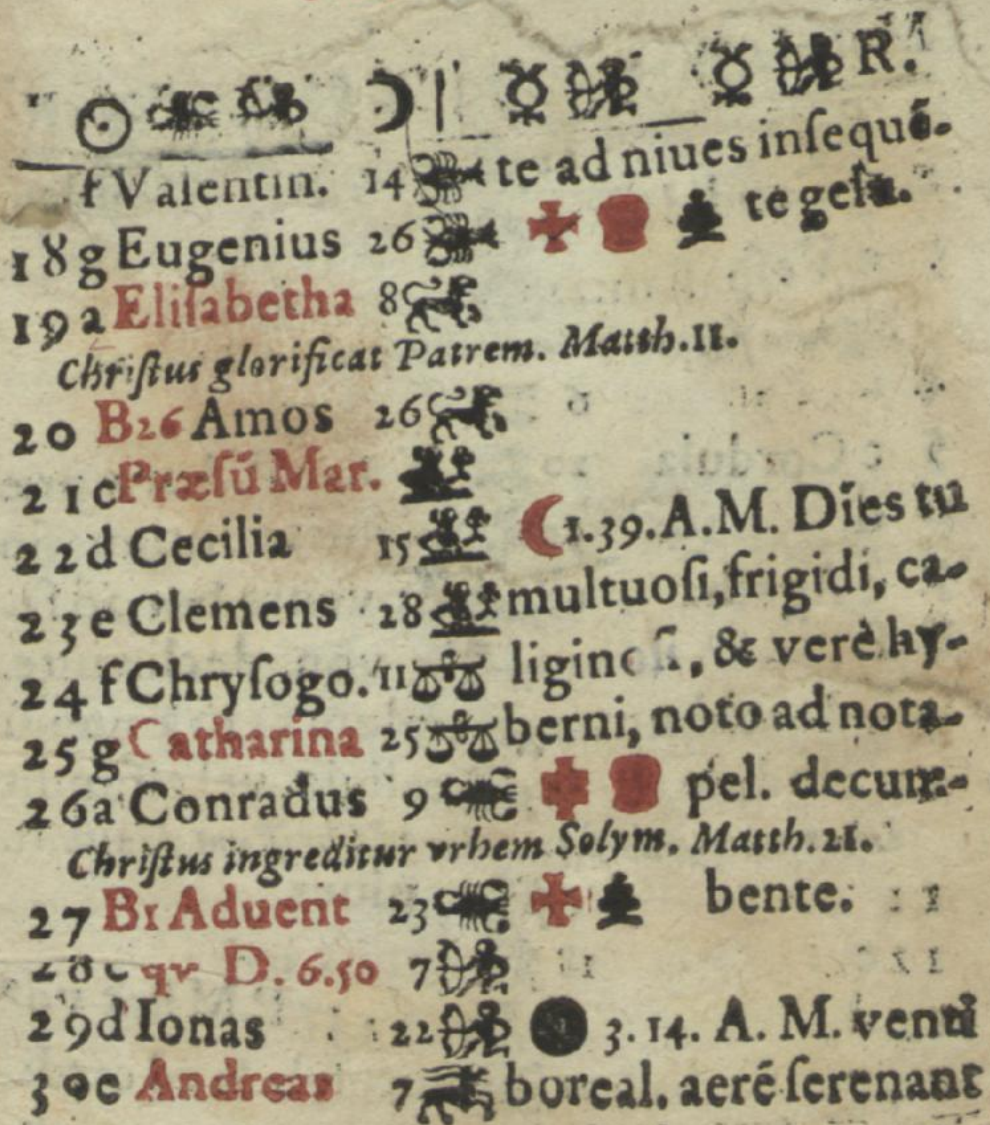 ☉ ♏ ♐ ☽ | ☿ ♐ ☿ ♐ R.
f Valentin. 14 te ad niues inſequē-
18 g Eugenius 26 te gelu.
19 a Eliſabetha 8
Chriſtus glorificat Patrem. Matth. 11.
20 B26 Amos 26
21 c Præſū Mar.
22 d Cecilia 15 ☾ 1.39. A.M. Dies tu
23 e Clemens 28 multuoſi, frigidi, ca-
24 f Chryſogo. 11 , & verè hy-
25 g Catharina 25 berni, noto ad nota-
26 a Conradus 9 pel. decum-
Chriſtus ingreditur vrbem Solym. Matth. 21.
27 B1 Aduent 23 bente.
28 c qv D. 6.50 7
29 d Ionas 22 3. 14. A. M. venti
30 e Andreas 7 boreal. aerē ſerenant